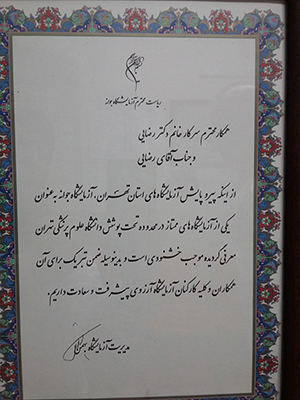 ریاست محترم آزمایشگاه جوانه
همکار محترم سرکار خانم دکتر رضایی
و جناب آقای رضایی
از اینکه پیرو پایش آزمایشگاه‌های استان تهران، آزمایشگاه جوانه به عنوان
یکی از آزمایشگاه‌های ممتاز در محدوده تحت پوشش دانشگاه علوم پزشکی تهران
معرفی گردیده موجب خشنودی است و بدینوسیله ضمن تبریک برای آن
همکاران و کلیه کارکنان آزمایشگاه آرزوی پیشرفت و سعادت داریم.
مدیریت آزمایشگاه